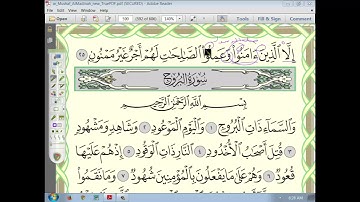 Al_Mushaf_AlMadinah_new_TruePDF.pdf (SECURED) - Adobe Reader
Tools
Fill & Sign
Comment
إِلَّا ٱلَّذِينَ ءَامَنُوا۟ وَعَمِلُوا۟ ٱلصَّٰلِحَٰتِ لَهُمْ أَجْرٌ غَيْرُ مَمْنُونٍ ٢٥
سُورَةُ ٱلْبُرُوجِ
بِسْمِ ٱللَّهِ ٱلرَّحْمَٰنِ ٱلرَّحِيمِ
وَٱلسَّمَآءِ ذَاتِ ٱلْبُرُوجِ ١ وَٱلْيَوْمِ ٱلْمَوْعُودِ ٢ وَشَاهِدٍ وَمَشْهُودٍ
٣ قُتِلَ أَصْحَٰبُ ٱلْأُخْدُودِ ٤ ٱلنَّارِ ذَاتِ ٱلْوَقُودِ ٥ إِذْ هُمْ عَلَيْهَا
قُعُودٌ ٦ وَهُمْ عَلَىٰ مَا يَفْعَلُونَ بِٱلْمُؤْمِنِينَ شُهُودٌ ٧ وَمَا نَقَمُوا۟